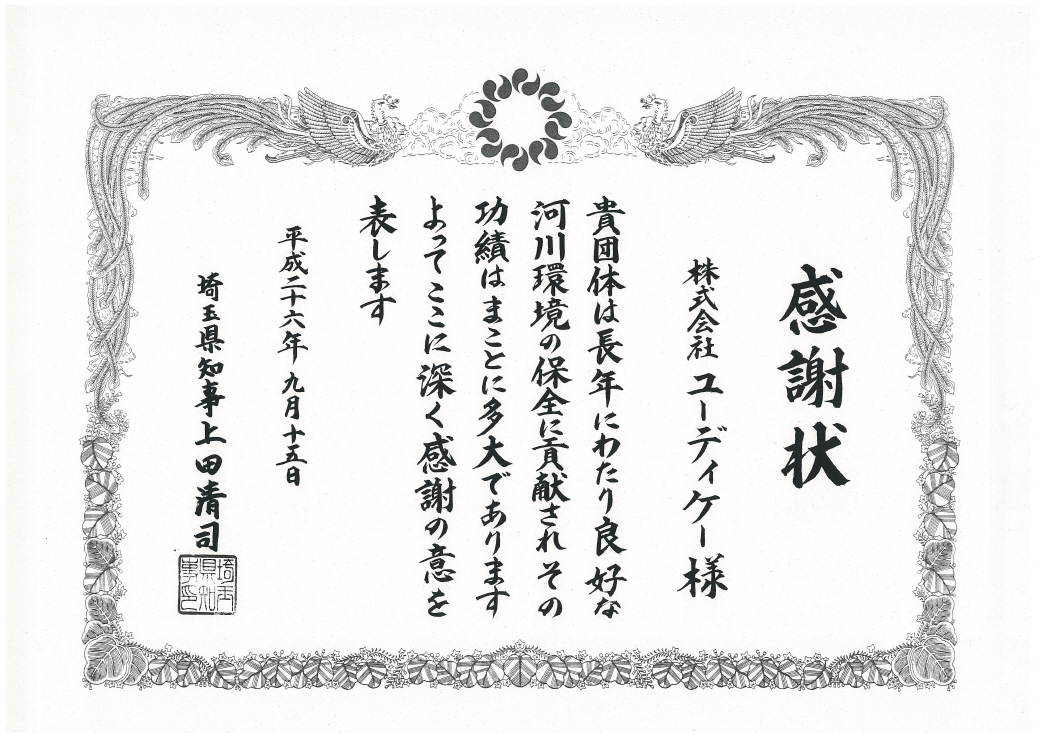 感謝状
株式会社 ユーディケー様
貴団体は長年にわたり良好な
河川環境の保全に貢献されその
功績はまことに多大であります
よってここに深く感謝の意を
表します
平成二十六年九月十五日
埼玉県知事上田清司
埼玉
県知
事印